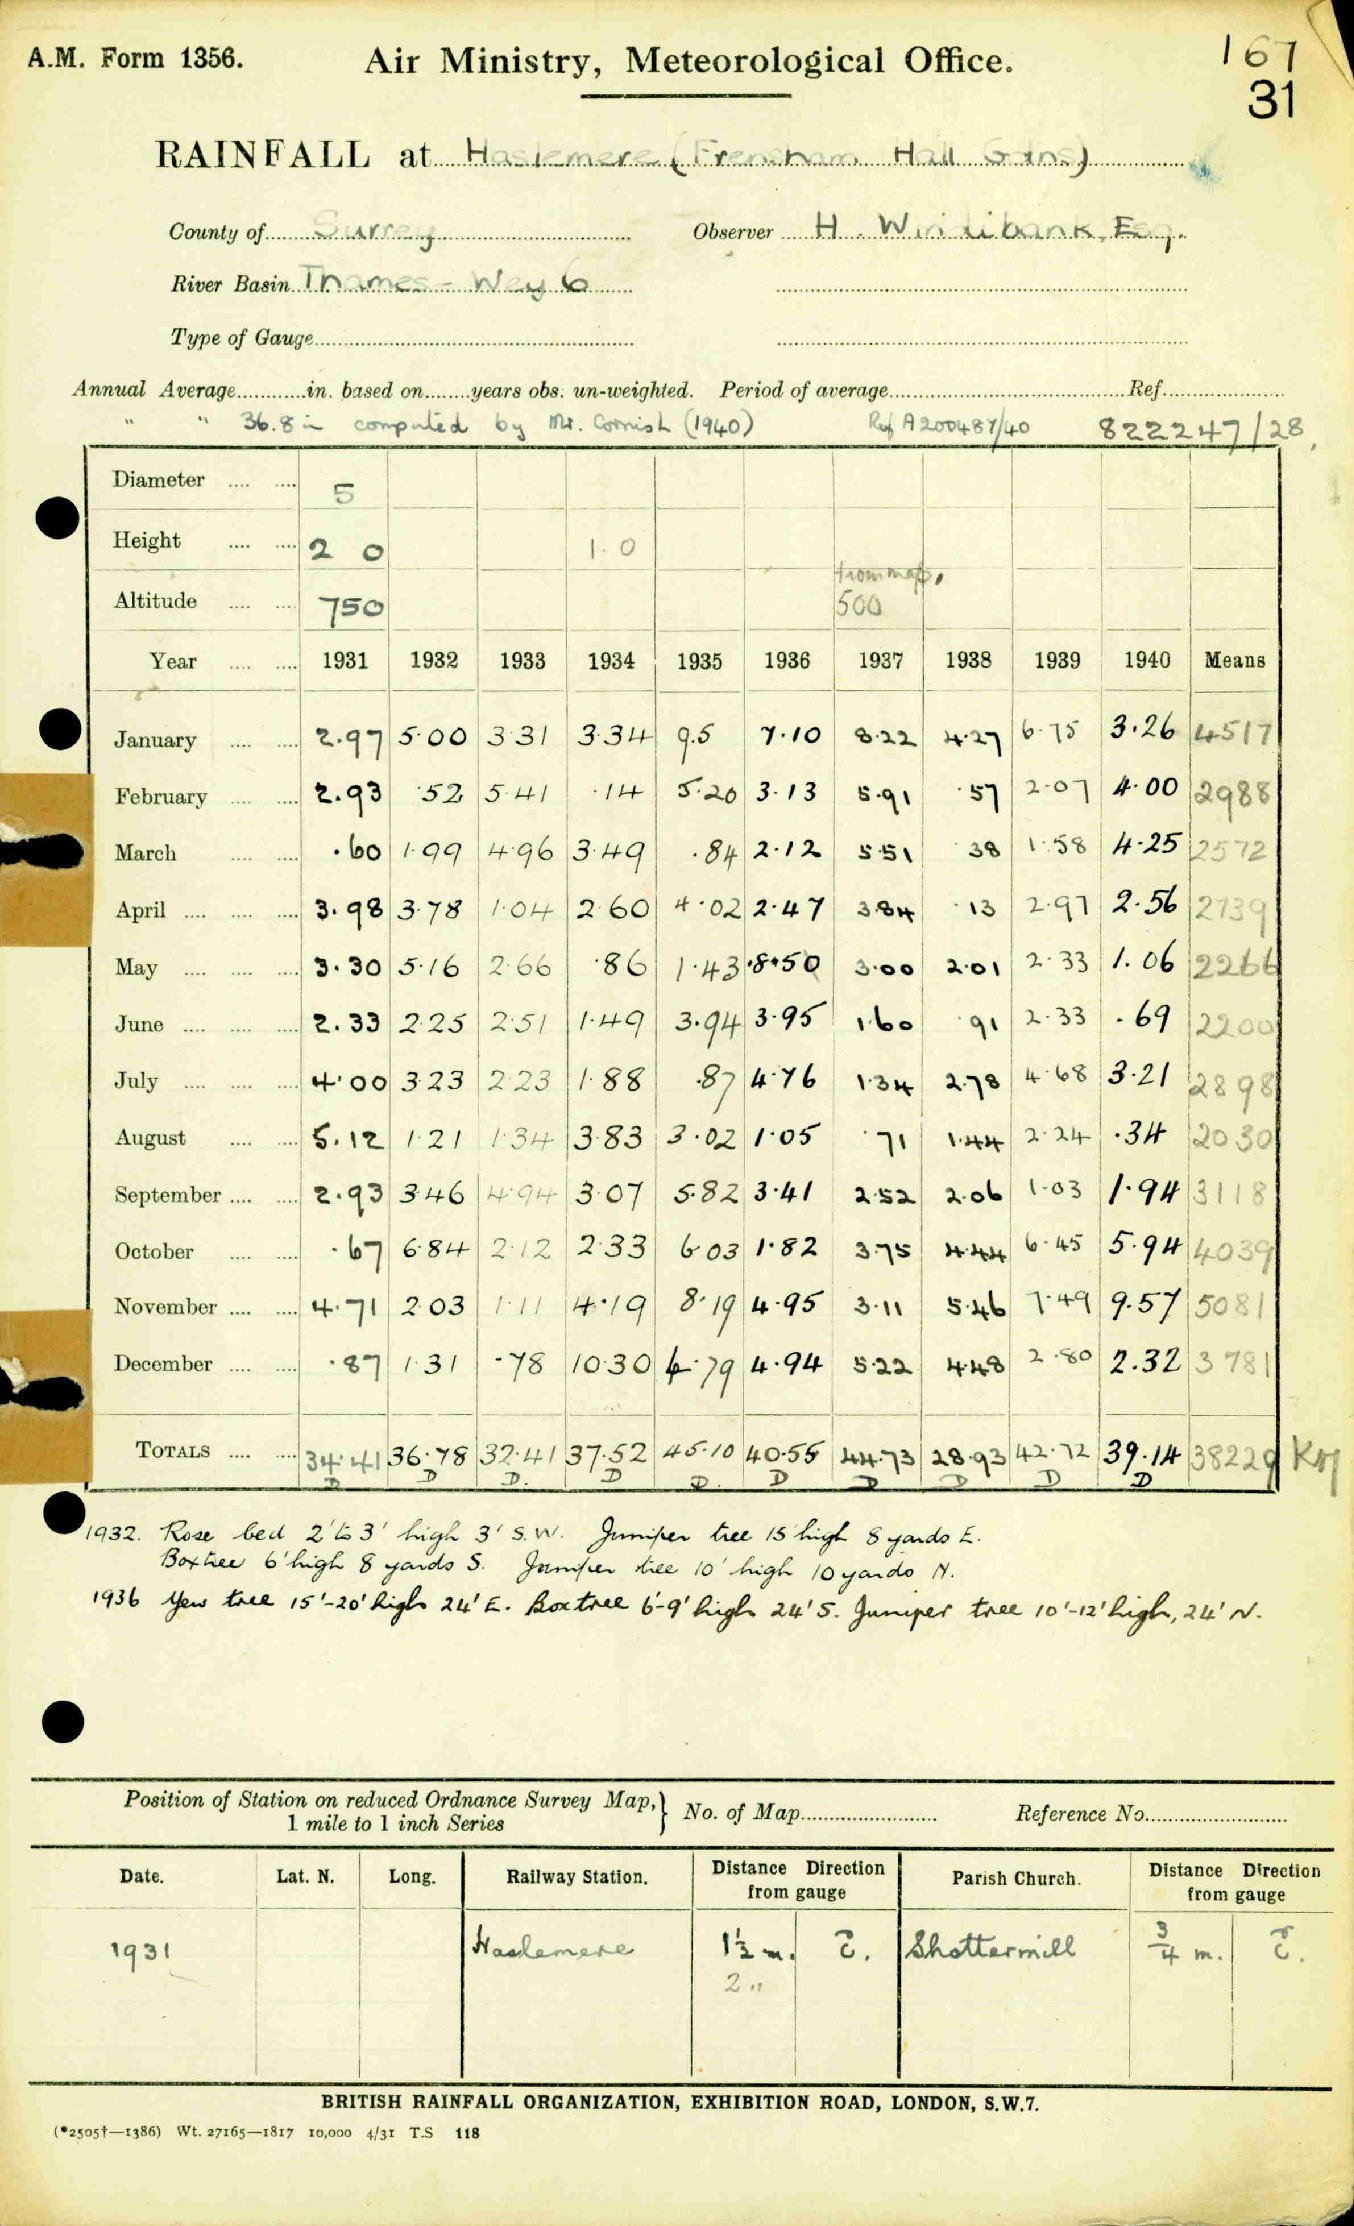 A.M. Form 1356. Air Ministry, Meteorological Office. 167
31
RAINFALL at Haslemere (Frensham Hall Gdns)
County of Surrey Observer H. Windibank, Esq.
River Basin Thames - Wey 6
Type of Gauge
Annual Average in. based on years obs. un-weighted. Period of average Ref.
" " 36.8 in computed by Mr. Cornish (1940) Ref A200487/40 822247/28
Diameter 5
Height 2 0 1.0
Altitude 750 from map. 500
Year 1931 1932 1933 1934 1935 1936 1937 1938 1939 1940 Means
January 2.97 5.00 3.31 3.34 .95 7.10 8.22 4.27 6.75 3.26 4517
February 2.93 .52 5.41 .14 5.20 3.13 5.91 .57 2.07 4.00 2988
March .60 1.99 4.96 3.49 .84 2.12 5.51 .38 1.58 4.25 2572
April 3.98 3.78 1.04 2.60 4.02 2.47 3.84 .13 2.97 2.56 2739
May 3.30 5.16 2.66 .86 1.43 .85 3.00 2.01 2.33 1.06 2266
June 2.33 2.25 2.51 1.49 3.94 3.95 1.60 .91 2.33 .69 2200
July 4.00 3.23 2.23 1.88 .87 4.76 1.34 2.78 4.68 3.21 2898
August 5.12 1.21 1.34 3.83 3.02 1.05 .71 1.44 2.24 .34 2030
September 2.93 3.46 4.94 3.07 5.82 3.41 2.52 2.06 1.03 1.94 3118
October .67 6.84 2.12 2.33 6.03 1.82 3.75 4.44 6.45 5.94 4039
November 4.71 2.03 1.11 4.19 8.19 4.95 3.11 5.46 7.49 9.57 5081
December .87 1.31 .78 10.30 4.79 4.94 5.22 4.48 2.80 2.32 3781
TOTALS 34.41 36.78 32.41 37.52 45.10 40.55 44.73 28.93 42.72 39.14 38229
D D D. D D. D D D D D
1932. Rose bed 2' to 3' high 3' S.W. Juniper tree 15' high 8 yards E.
Boxtree 6' high 8 yards S. Juniper tree 10' high 10 yards N.
1936 Yew tree 15'-20' high 24' E. Boxtree 6'-9' high 24' S. Juniper tree 10'-12' high, 24' N.
Position of Station on reduced Ordnance Survey Map,} No. of Map Reference No.
1 mile to 1 inch Series
Date. Lat. N. Long. Railway Station. Distance Direction from gauge Parish Church. Distance Direction from gauge
1931 Haslemere 1½ m. E. Shottermill ¾ m. E.
2 "
BRITISH RAINFALL ORGANIZATION, EXHIBITION ROAD, LONDON, S.W.7.
(*2505†—1386) Wt. 27165—1817 10,000 4/31 T.S 118